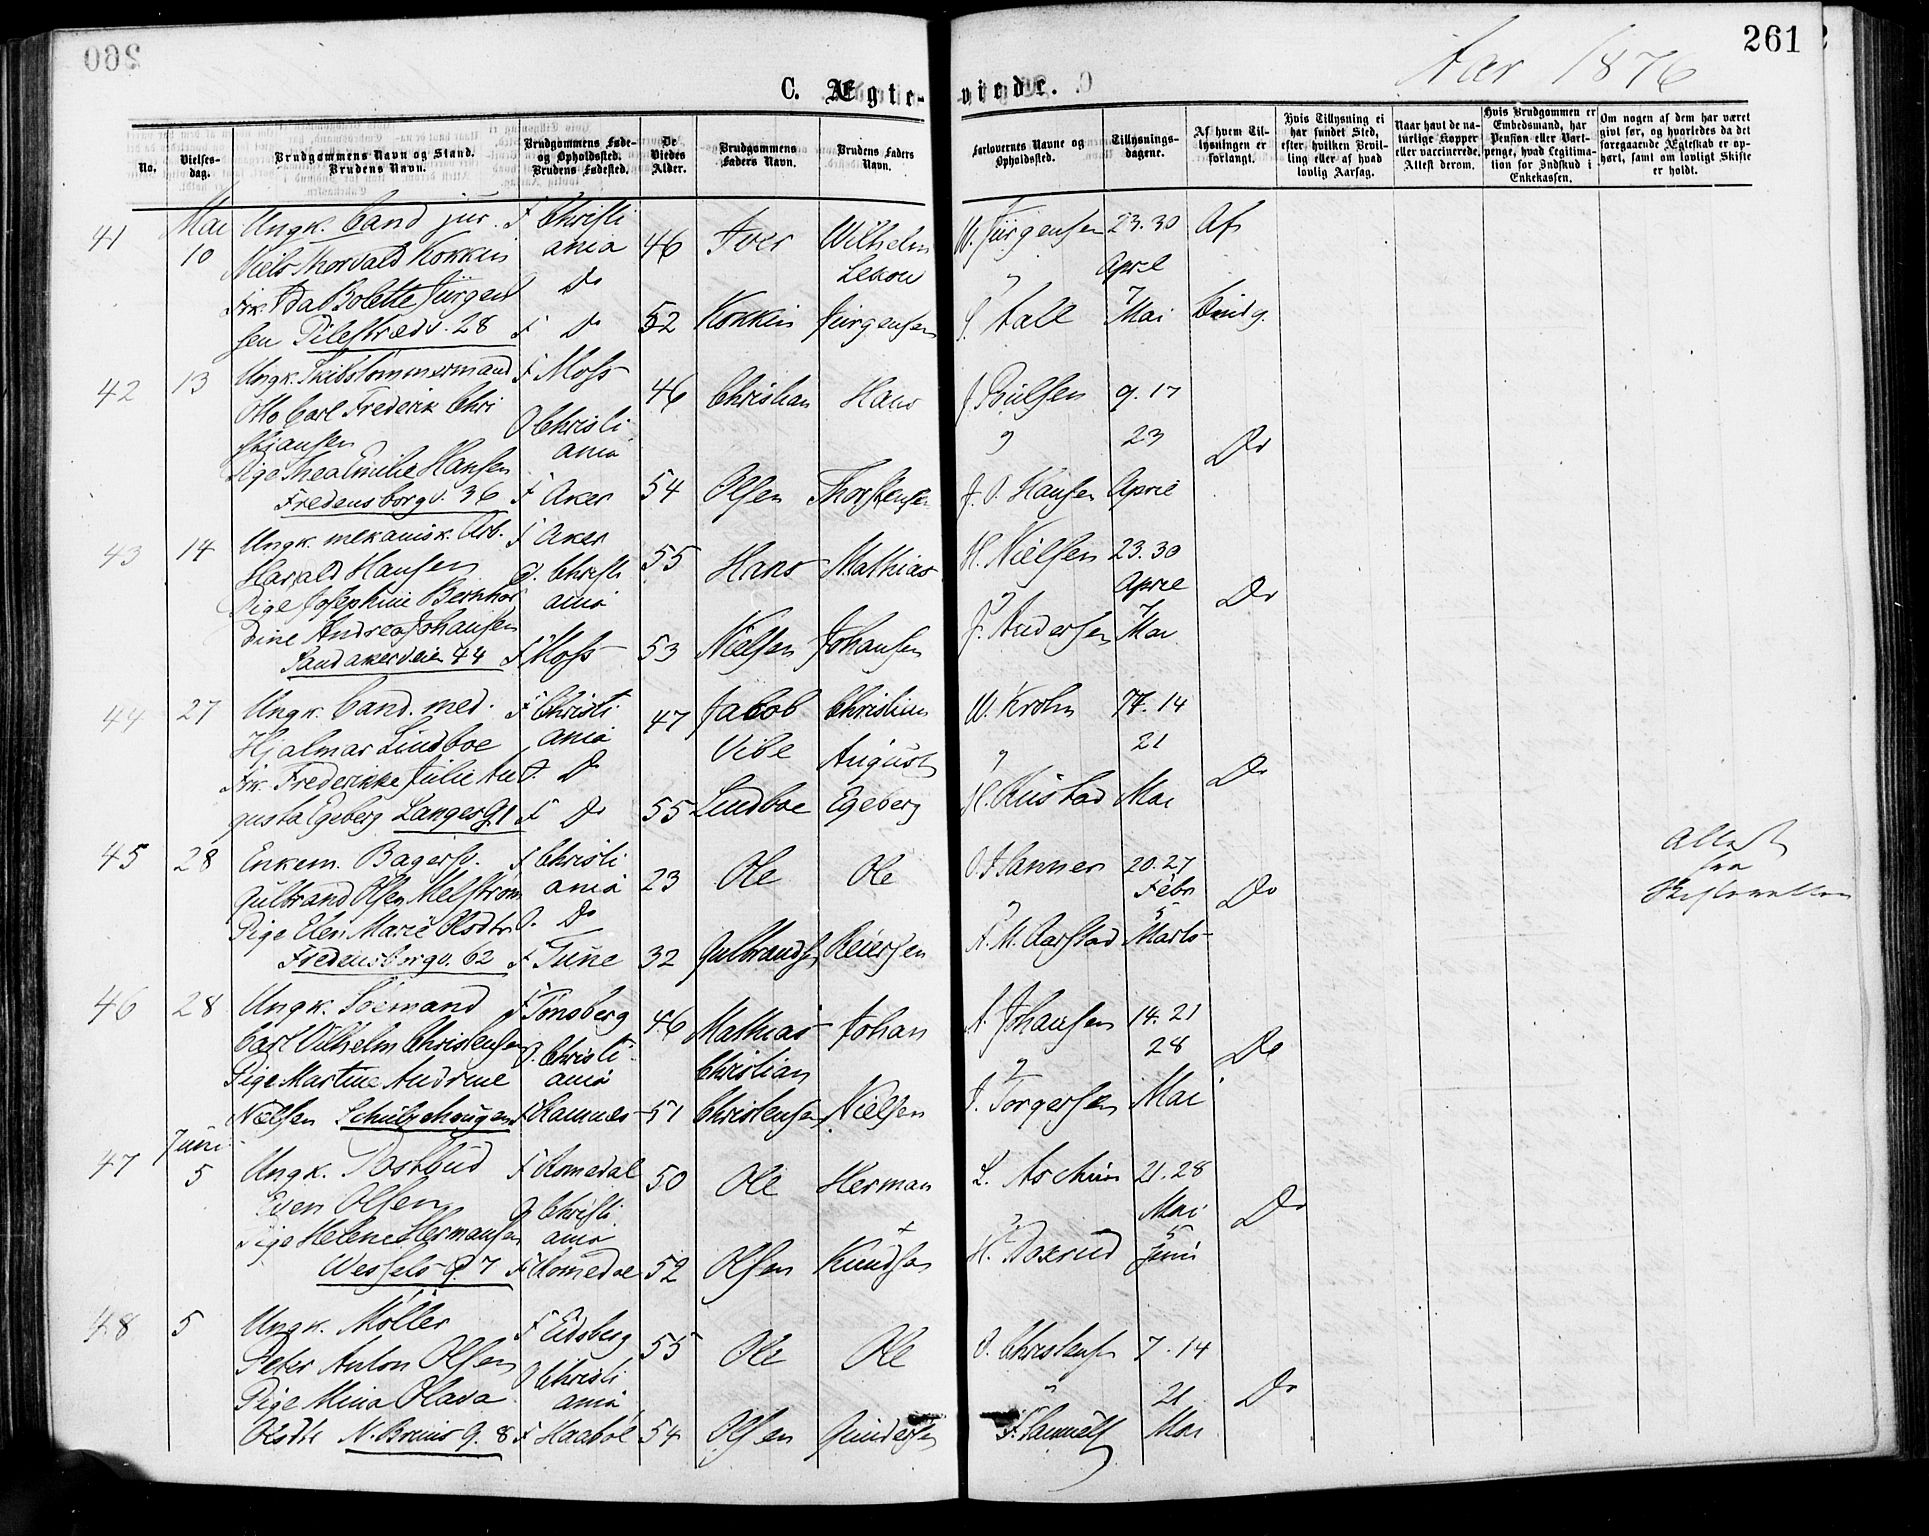 260
261
Aar 1876
C. Ægteviede.
No.
Vielses-
dag.
Brudgommens Navn og Stand.
Brudens Navn.
Brudgommens Føde-
og Opholdssted.
Brudens Fødested.
De
Viedes
Alder.
Brudgommens
Faders Navn.
Brudens Faders
Navn.
Forlovernes Navne og
Opholdssted.
Tillysnings-
dagene.
Af hvem Til-
lysningen er
forlangt.
Hvis Tillysning ei
har fundet Sted,
efter hvilken Bevil-
ling eller af hvad
lovlig Aarsag.
Naar havt de na-
turlige Kopper
eller vaccinerede.
Attest derom.
Hvis Brudgommen er
Embedsmand, har
Pension eller Vart-
penge, hvad Legitima-
tion for Indskud i
Enkekassen.
Om nogen af dem har været
gift før, og hvorledes da det
foregaaende Ægteskab er op-
hørt, samt om lovligt Skifte
er holdt.
41
Mai
10
Ungk. Cand jur.
Niels Thorvald Kokkin
Frk. Ida Bolette Jürgen
sen Pilestræd. 28
F Christi
ania
O Do
F Do
46
52
Iver
Kokkin
Wilhelm
Jürgensen
W. Jürgensen
"
S. Aall
23.30
April
7
Mai
Af
Brudg.
42
13
Ungk. Skibstømmermand
Otto Carl Frederik Chri
stiansen
Pige Thea Emilie Hansen
Fredensborgv. 36
F Moss
O Christi
ania
F Aker
46
54
Christian
Olsen
Hans
Thorstensen
"
J. O. Hansen
9.17
23
April
Do
43
14
Ungk. mekanisk Arb.
Harald Hansen
Pige Josephine Bernhar
dine Andrea Johansen
Sandakerveien 44
F Aker
O. Christi
ania
F Moss
55
53
Hans
Nielsen
Mathias
Johansen
H. Nielsen
"
J. Andersen
23.30
April
7
Mai
Do
44
27
Ungk. Cand. med.
Hjalmar Lindboe
Frk. Frederikke Julie Au
gusta Egeberg Langes G. 1
F Christi
ania
O. Do
F Do
47
55
Jacob
Vibe
Lindboe
Christian
August
Egeberg
W. Krohn
"
H. Rustad
7.14
21
Mai
Do
45
28
Enkem. Bagersv.
Gulbrand Olsen Melstrøm
Pige Elen Marie Olsdtr.
Fredensborgv. 62
F Christi
ania
O. Do
F Tune
23
32
Ole
Gulbrandsen
Ole
Reiersen
O. Hanner
"
A. M. Aarstad
20.27
Febr
5
Marts
Do
Attest
fra
Skifteretten
46
28
Ungk. Sømand
Carl Vilhelm Christensen
Pige Martine Andrine
Nielsen Schultzehougen
F Tønsberg
O. Christi
ania
F Ramnes
46
51
Mathias
Christian
Christensen
Johan
Nielsen
A. Johansen
"
J. Torgersen
14.21
28
Mai
Do
47
Juni
5
Ungk. Postbud
Even Olsen
Pige Helene Hermansen
Wessels G. 7
F Romedal
O Christi
ania
F Romedal
50
52
Ole
Olsen
Herman
+
Knudsen
L. Aschim
"
21.28
Mai
5
Juni
Do
48
5
Ungk. Møller
Peter Anton Olsen
Pige Mina Olava
Olsdtr N. Bruns G. 8
F Eidsberg
O Christi
ania
F Haabøl
55
54
Ole
Olsen
Ole
Gundersen
O. Christensen
"
7.14
21
Mai
Do